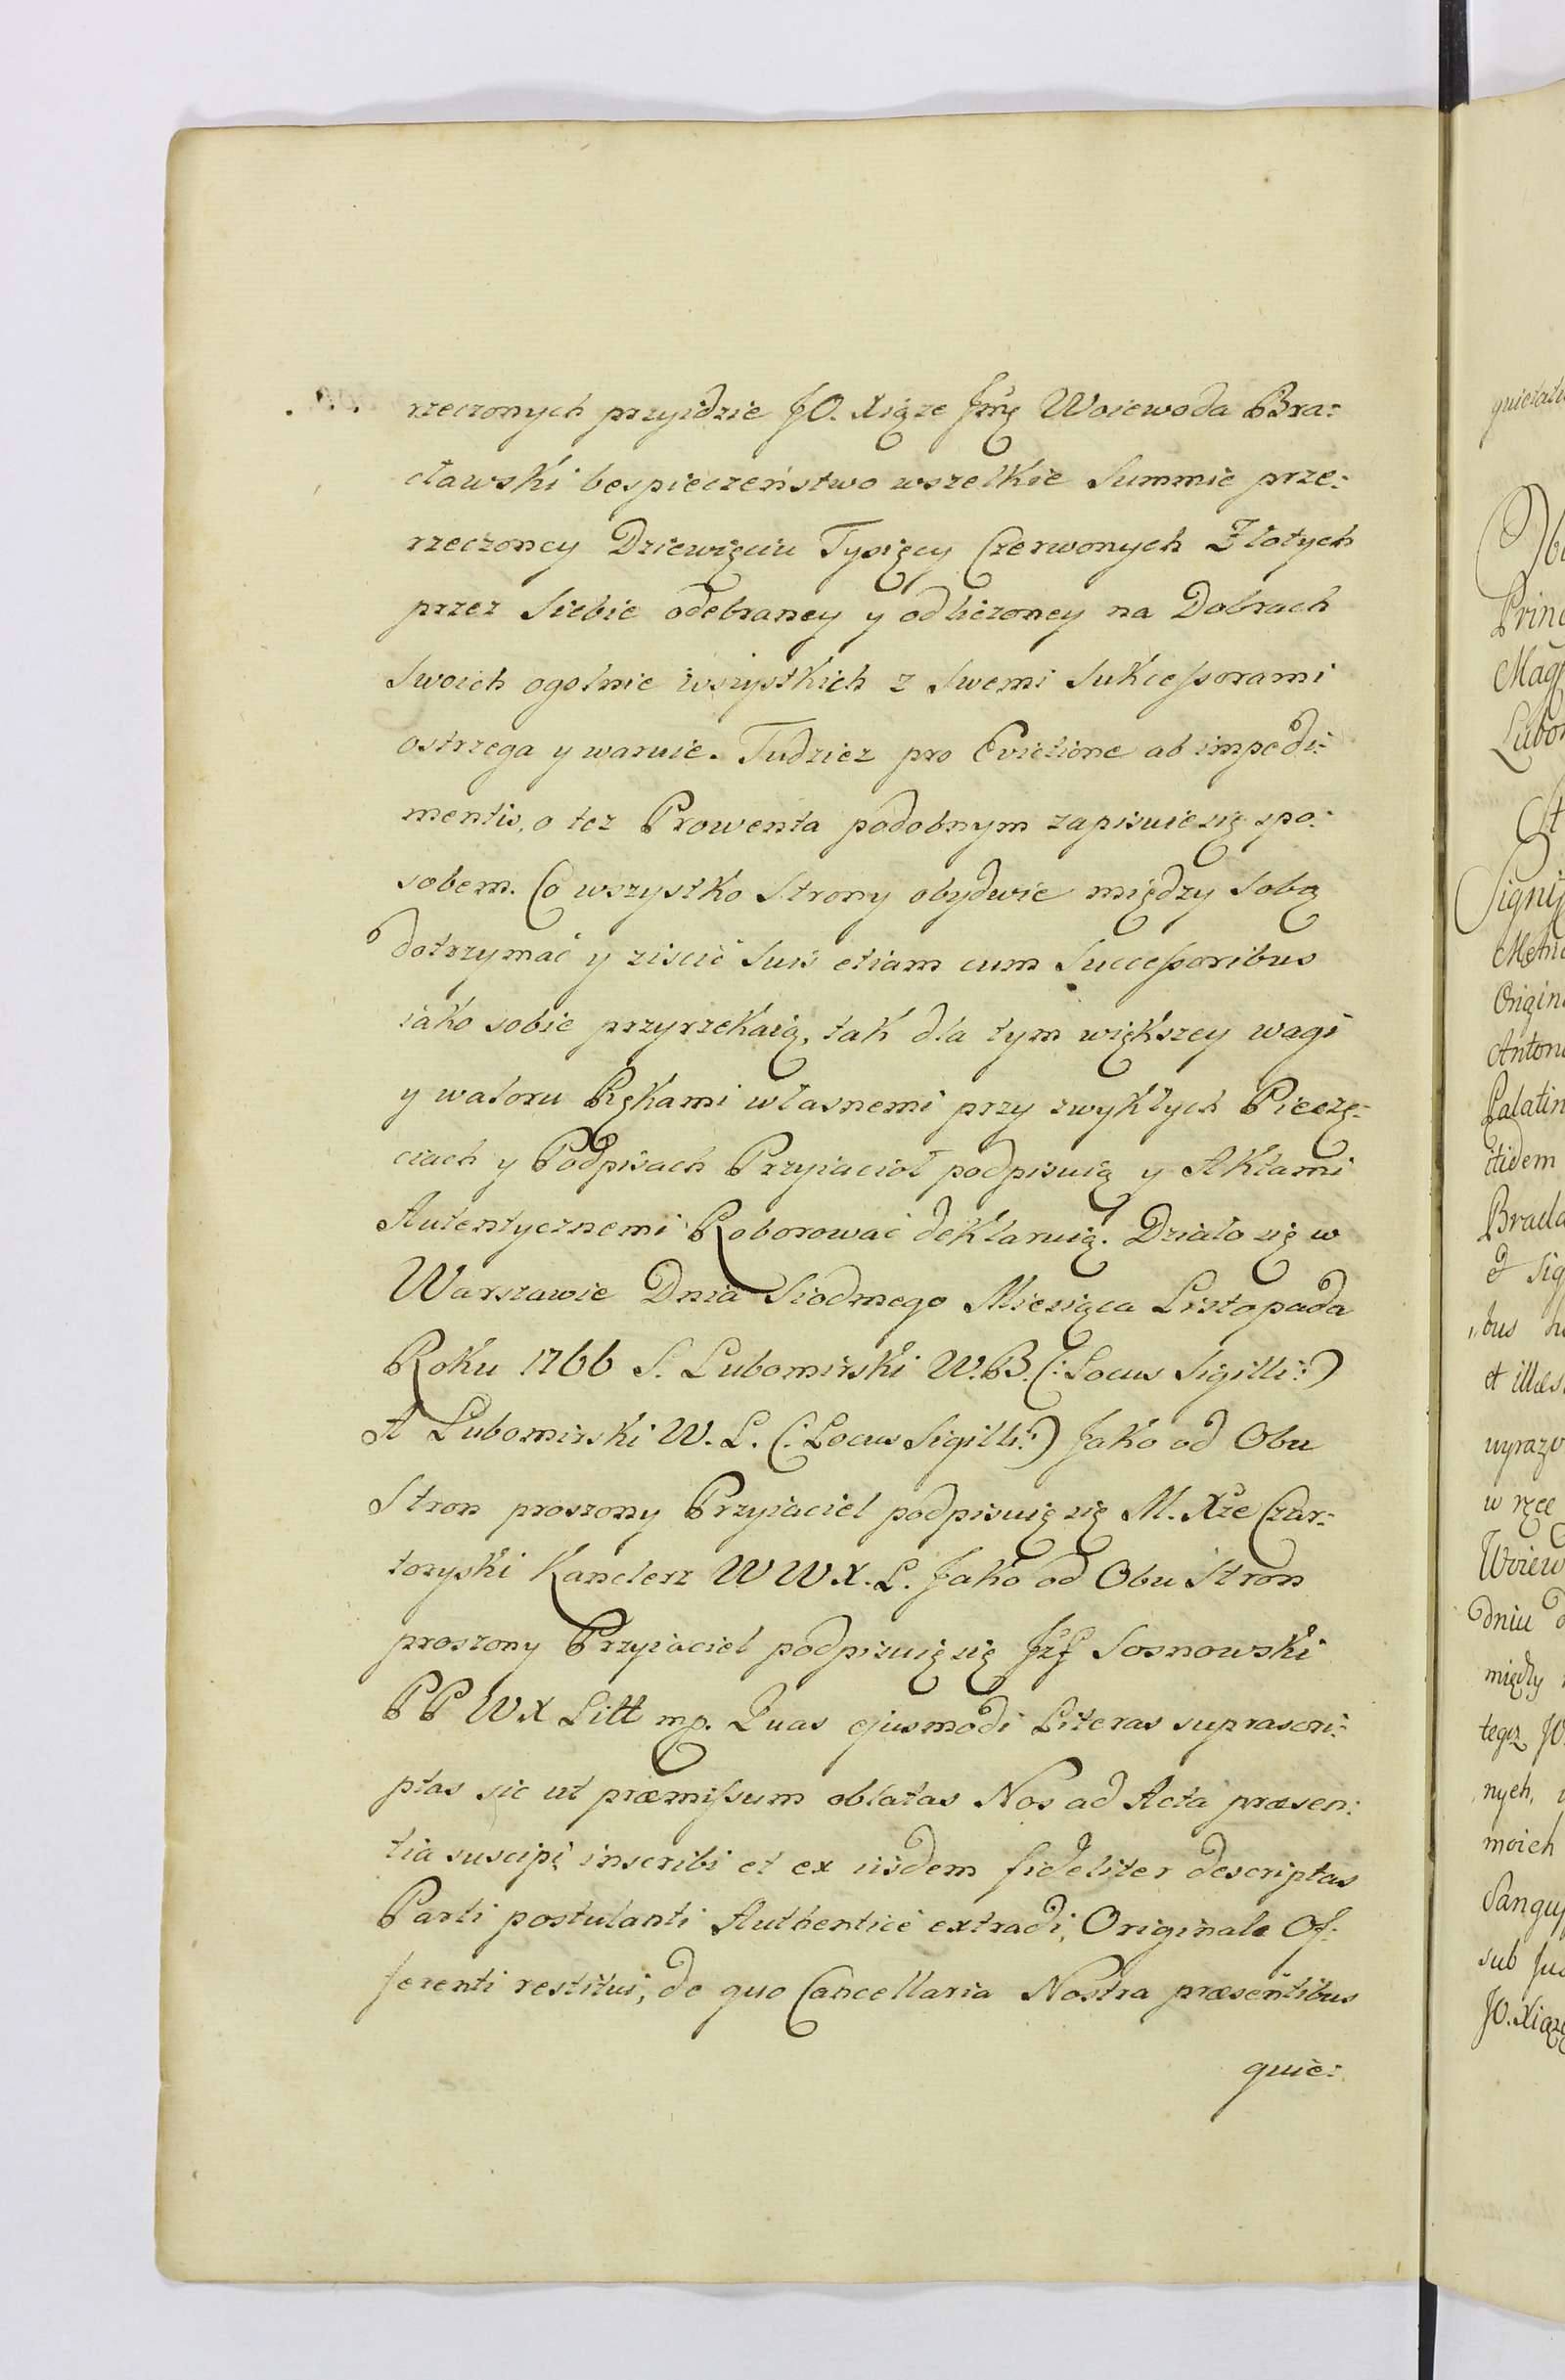 rzeczonych przyidzie JO. Xiąze Jmę Woiewoda Bra:
cławski bespieczeństwo wszelkie Summie prze:
rzeczoney Dziewięciu Tysięcy Czerwonych Złotych
przez Siebie odebraney y odliczoney na Dobrach
Swoich ogolnie wszystkich z Swemi Sukcessorami
ostrzega y waruie. Tudziez pro Evictione ab impedi:
mentis, o tez Prowenta podobnym zapisuie się spo:
sobem. Co wszystko Strony obydwie między Sobą
dotrzymać y ziscić Suis etiam cum Successoribus
iako sobie przyrzekaią, tak dla tym większey wagi
y waloru Rękami własnemi przy zwykłych Pieczę:
ciach y Podpisach Przyiacioł podpisuią y Aktami
Autentycznemi Roborować deklaruią. Działo się w
Warszawie Dnia Siodmego Miesiąca Listopada
Roku 1766 S. Lubomirski W.B. (: Locus Sigilli :)
A Lubomirski W. L. (: Locus Sigilli :) Jako od Obu
Stron proszony Przyiaciel podpisuię się M. Xże Czar:
toryski Kanclerz W W X. L. Jako od Obu Stron
proszony Przyiaciel podpisuię się Jzf Sosnowski
P P W X Litt mp. Quas ejusmodi Literas suprascri:
ptas sic ut præmissum oblatas Nos ad Acta præsen:
tia suscipi, inscribi et ex iisdem fideliter descriptas
Parti postulanti Authenticè extradi, Originale Of:
ferenti restitui, de quo Cancellaria Nostra præsentibus
quie:
quietatu
Princ
Mag
Lubo
Signi
Origin
Anton
Palatin
itidem
Bracla
et Sig
et illæs
wyrazo
w rzec
Woiew
dniu d
między
nych,
moich
Sangus
sub
JO. Xiąz